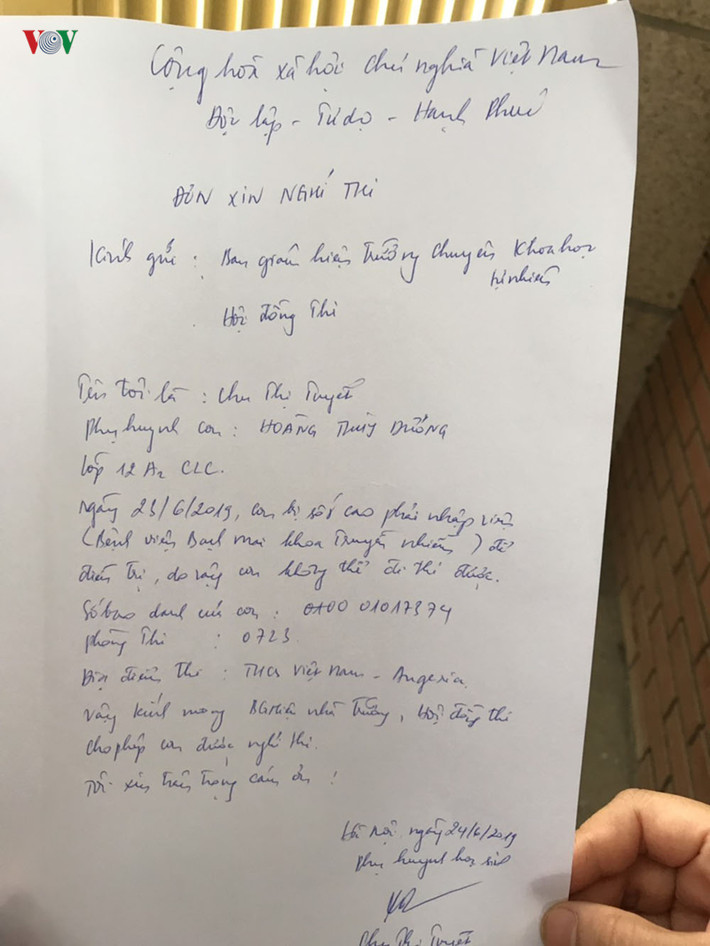 VOV
Cộng hoà xã hội chủ nghĩa Việt Nam
Độc lập - Tự do - Hạnh Phúc
ĐƠN XIN NGHỈ THI
Kính gửi : Ban giám hiệu trường chuyên khoa học
tự nhiên
Hội đồng Thi
Tên tôi là : Chu Thị Tuyết
Phụ huynh con : HOÀNG THÙY DƯƠNG
lớp 12 A2 CLC.
Ngày 23/6/2019, con bị sốt cao phải nhập viện
(Bệnh viện Bạch Mai khoa Truyền nhiễm) để
điều trị, do vậy con không thể đi thi được.
Số báo danh của con : 01017374
phòng Thi : 0723
Địa điểm thi : THCS Việt Nam - Angeria
Vậy kính mong BGHiệu nhà trường, Hội đồng thi
cho phép con được nghỉ thi.
Tôi xin trân trọng cám ơn !
Hà Nội, ngày 24/6/2019
Phụ huynh học sinh
Chu Thị Tuyết